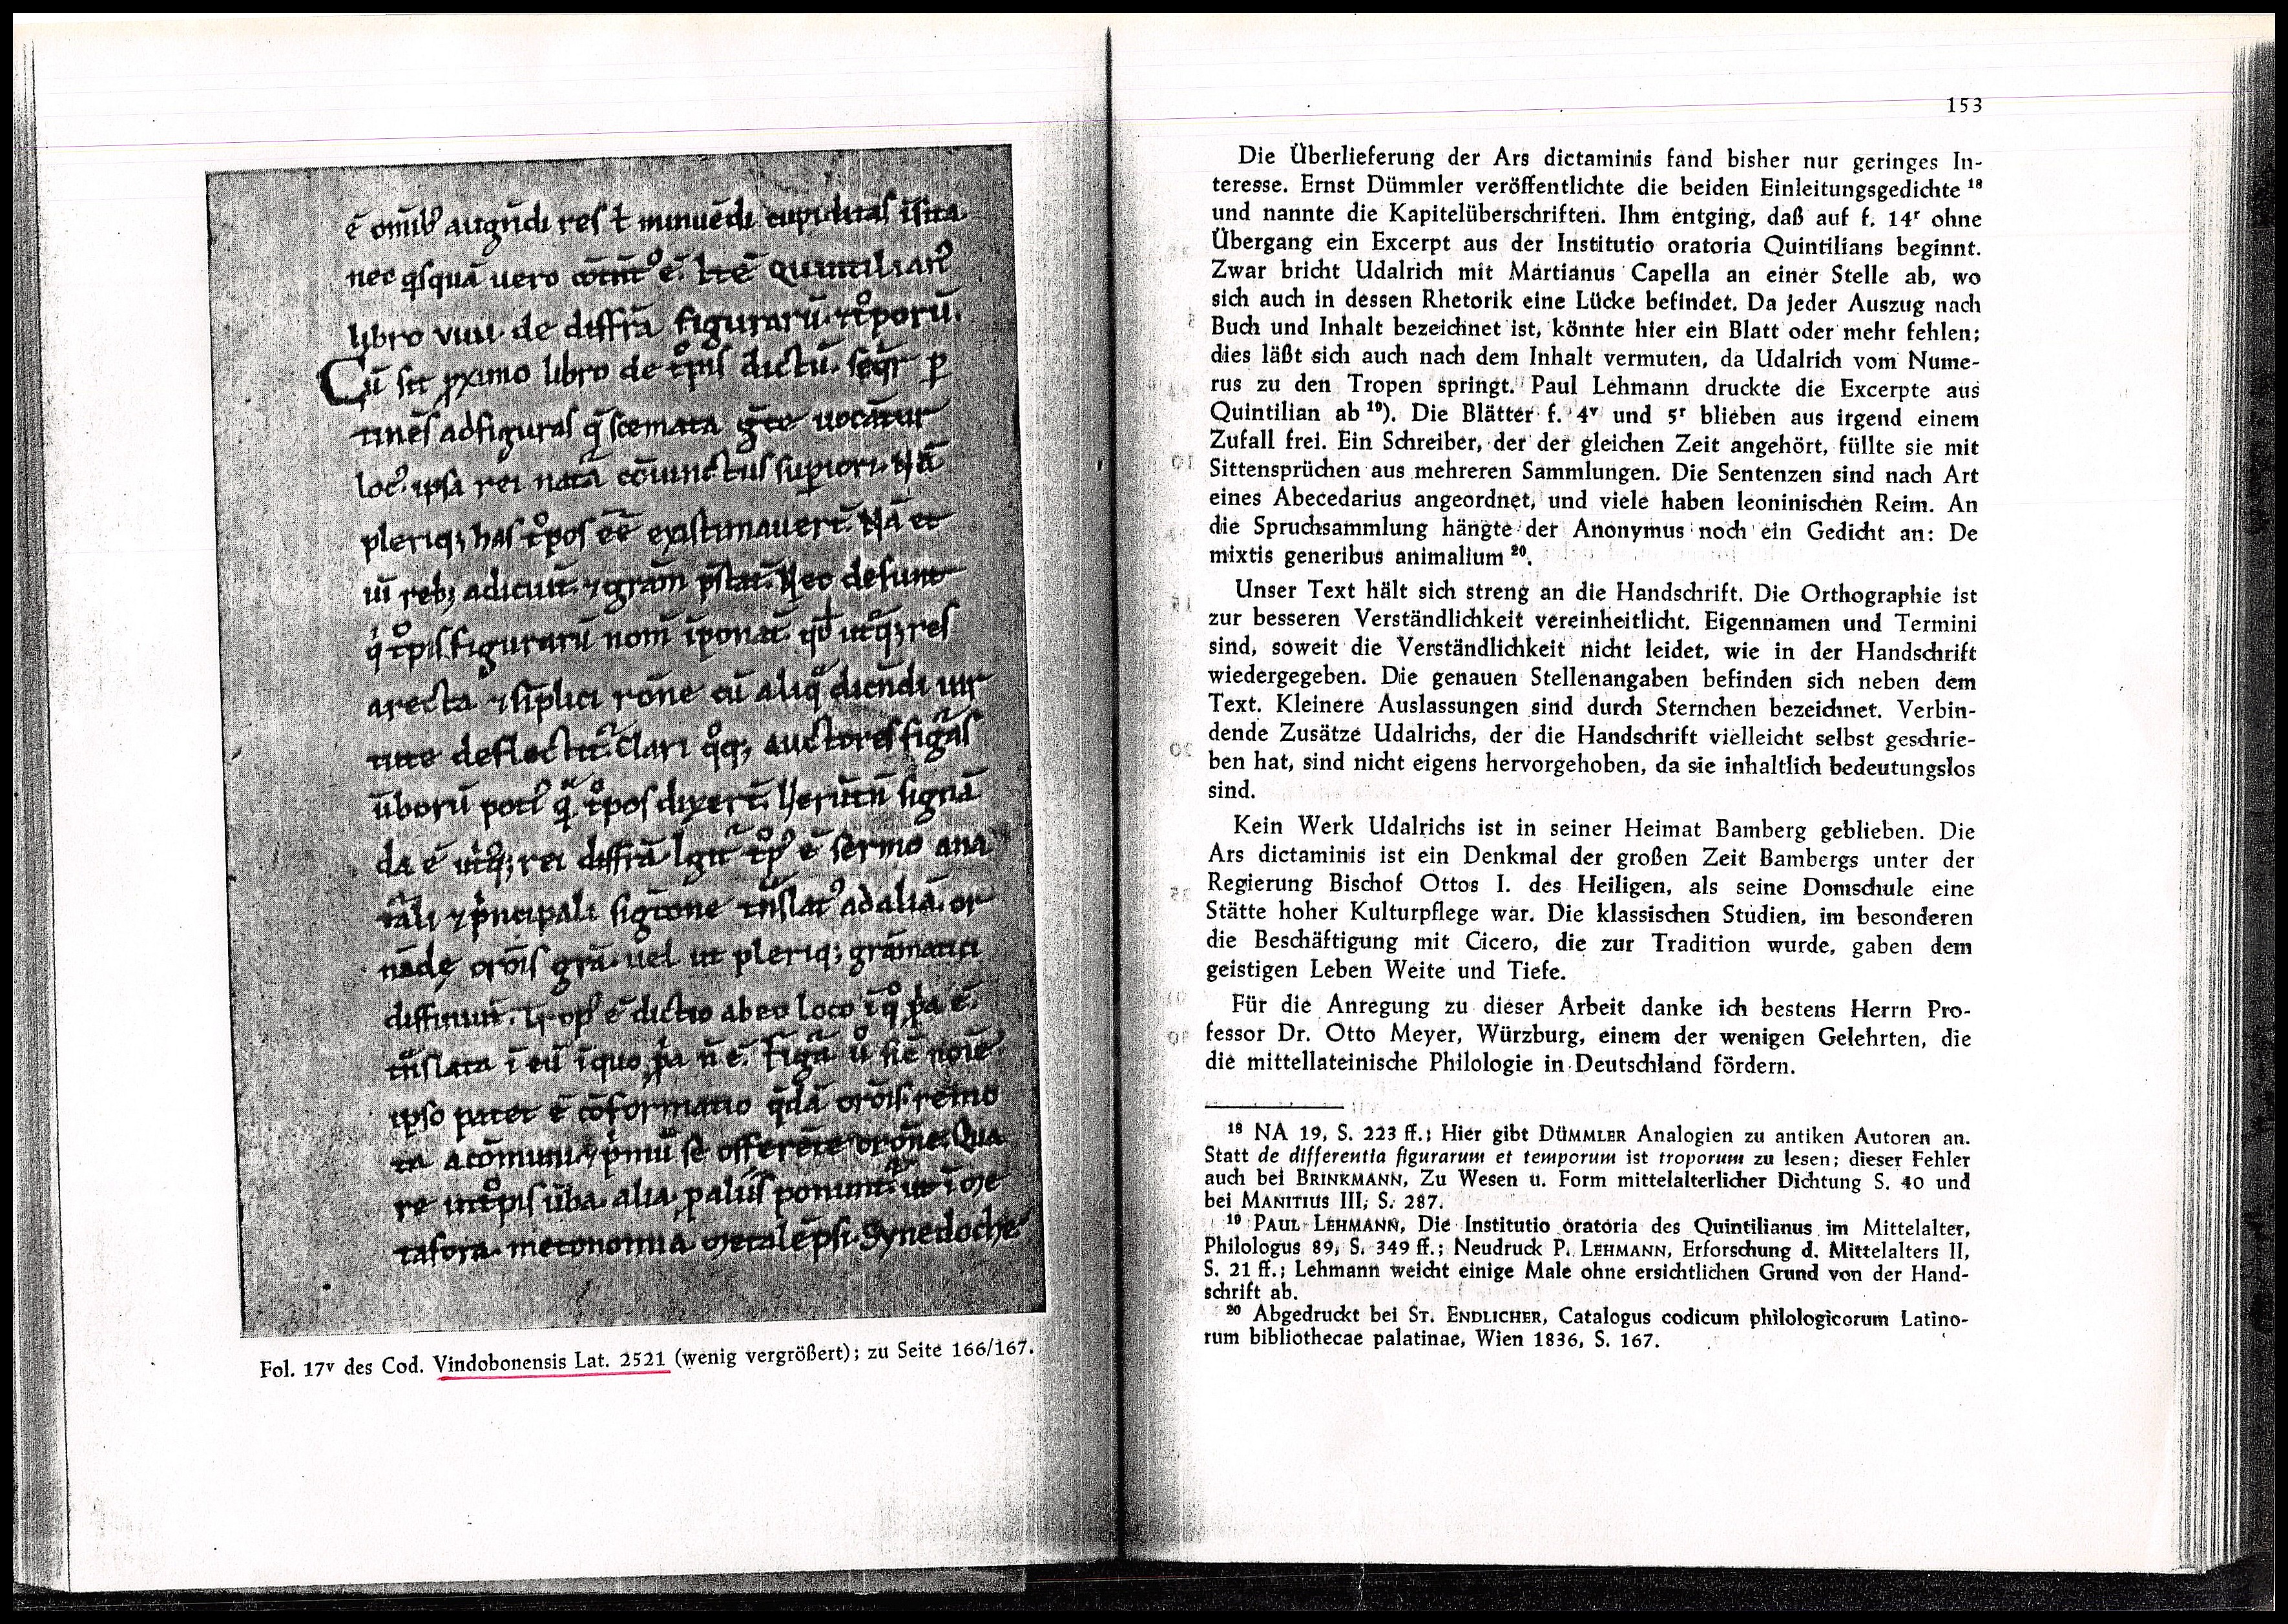 ē omīb' augn̄di res ł minuēdi cupiditas īsita.
nec q̇squā uero ē. QUINTILIAN'
libro VIIII. de diffr̄a figurarū. tͦporū.
Cū sit ꝓximo libro de tͦpis dictū. seqr̄ ꝑ
tinēs ad figuras q̄ scemata gr̄ce uocātur
loc' ipsa rei natā cōiunctus supiori. Nā
pleriq; has tͦpos eē existimauert̄. Nā et
uī reb; adiciūt. ⁊ grām p̄stāt. Nec desunt
q̇ tͦpis figurarū nom̄ īponāt. res
arecta ⁊ sīplici rōne cū aliq̄ dicn̄di uir
tute deflectūt. Clari qͦq; auctores figas
ūborū poti' q̄ tͦpos dixert̄. signā
da ē rei diffr̄a. Igit̄ tͦp' ē sermo a na
tāli ⁊ p̄ncipali sigtōne tn̄slat' ad aliā. or
nādę orōis grā. uel ut pleriq; grāmatici
diffiniūt. Trop' ē dictio ab eo loco ī qͦ ꝓpa ē.
tn̄slata ī eū ī quo ꝓpa n̄ ē. Figā ů sic noīe
ipso patet ē cōformatio q̄dā orōis remo
ta a cōmuni ⁊ p̄mū se offerēte orōne. Qua
re in tͦpis ūba alia ponunt̄. ut ī me
tafora. metonomia metalēpsi. Synedoche
Fol. 17ᵛ des Cod. Vindobonensis Lat. 2521 (wenig vergrößert); zu Seite 166/167.
153
Die Überlieferung der Ars dictaminis fand bisher nur geringes In-
teresse. Ernst Dümmler veröffentlichte die beiden Einleitungsgedichte ¹⁸
und nannte die Kapitelüberschriften. Ihm entging, daß auf f. 14ʳ ohne
Übergang ein Excerpt aus der Institutio oratoria Quintilians beginnt.
Zwar bricht Udalrich mit Martianus Capella an einer Stelle ab, wo
sich auch in dessen Rhetorik eine Lücke befindet. Da jeder Auszug nach
Buch und Inhalt bezeichnet ist, könnte hier ein Blatt oder mehr fehlen;
dies läßt sich auch nach dem Inhalt vermuten, da Udalrich vom Nume-
rus zu den Tropen springt. Paul Lehmann druckte die Excerpte aus
Quintilian ab ¹⁹). Die Blätter f. 4ᵛ und 5ʳ blieben aus irgend einem
Zufall frei. Ein Schreiber, der der gleichen Zeit angehört, füllte sie mit
Sittensprüchen aus mehreren Sammlungen. Die Sentenzen sind nach Art
eines Abecedarius angeordnet, und viele haben leoninischen Reim. An
die Spruchsammlung hängte der Anonymus noch ein Gedicht an: De
mixtis generibus animalium ²⁰.
Unser Text hält sich streng an die Handschrift. Die Orthographie ist
zur besseren Verständlichkeit vereinheitlicht. Eigennamen und Termini
sind, soweit die Verständlichkeit nicht leidet, wie in der Handschrift
wiedergegeben. Die genauen Stellenangaben befinden sich neben dem
Text. Kleinere Auslassungen sind durch Sternchen bezeichnet. Verbin-
dende Zusätze Udalrichs, der die Handschrift vielleicht selbst geschrie-
ben hat, sind nicht eigens hervorgehoben, da sie inhaltlich bedeutungslos
sind.
Kein Werk Udalrichs ist in seiner Heimat Bamberg geblieben. Die
Ars dictaminis ist ein Denkmal der großen Zeit Bambergs unter der
Regierung Bischof Ottos I. des Heiligen, als seine Domschule eine
Stätte hoher Kulturpflege war. Die klassischen Studien, im besonderen
die Beschäftigung mit Cicero, die zur Tradition wurde, gaben dem
geistigen Leben Weite und Tiefe.
Für die Anregung zu dieser Arbeit danke ich bestens Herrn Pro-
fessor Dr. Otto Meyer, Würzburg, einem der wenigen Gelehrten, die
die mittellateinische Philologie in Deutschland fördern.
¹⁸ NA 19, S. 223 ff.; Hier gibt DÜMMLER Analogien zu antiken Autoren an.
Statt de differentia figurarum et temporum ist troporum zu lesen; dieser Fehler
auch bei BRINKMANN, Zu Wesen u. Form mittelalterlicher Dichtung S. 40 und
bei MANITIUS III, S. 287.
¹⁹ PAUL LEHMANN, Die Institutio oratoria des Quintilianus im Mittelalter,
Philologus 89, S. 349 ff.; Neudruck P. LEHMANN, Erforschung d. Mittelalters II,
S. 21 ff.; Lehmann weicht einige Male ohne ersichtlichen Grund von der Hand-
schrift ab.
²⁰ Abgedruckt bei ST. ENDLICHER, Catalogus codicum philologicorum Latino-
rum bibliothecae palatinae, Wien 1836, S. 167.